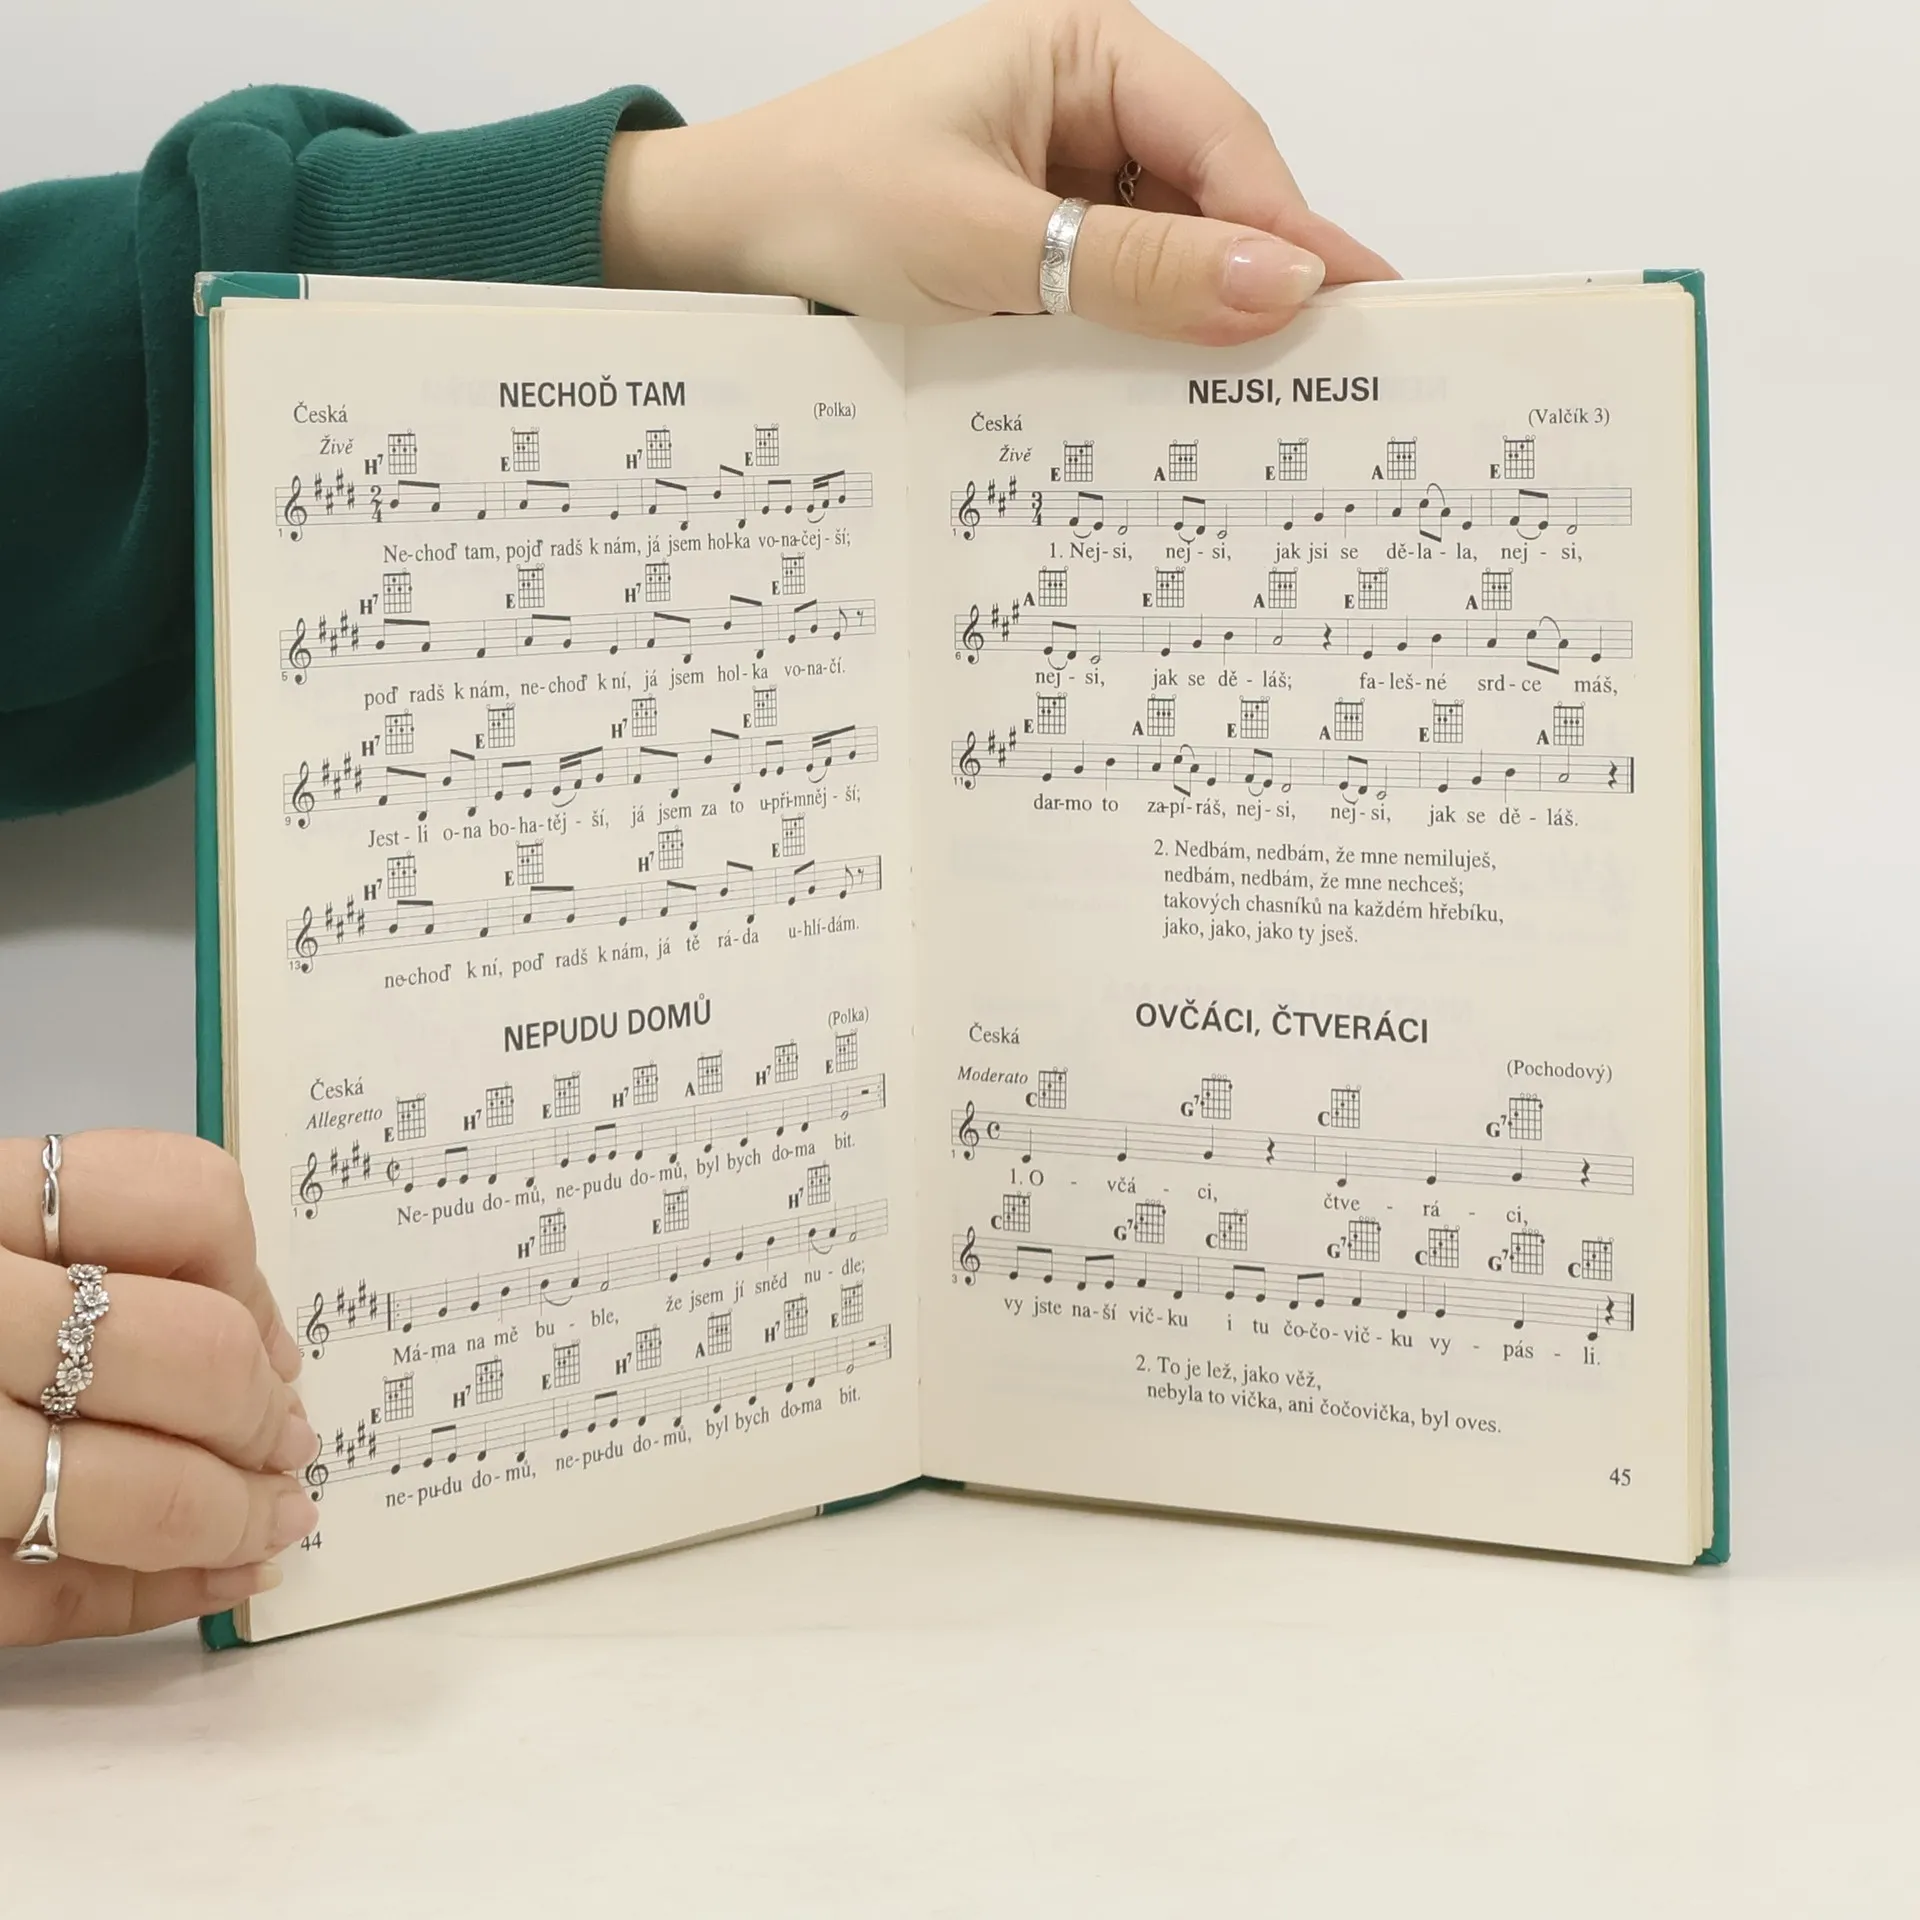 NECHOĎ TAM
Česká
(Polka)
Živě
H7 E H7 E
2
4
1
Ne-choď tam, pojď radš k nám, já jsem hol-ka vo-na-čej-ší;
H7 E H7 E
5
poď radš k nám, ne-choď k ní, já jsem hol-ka vo-na-čí.
H7 E H7 E
9
Jest-li o-na bo-ha-těj-ší, já jsem za to u-pří-mněj-ší;
H7 E H7 E
13
ne-choď k ní, poď radš k nám, já tě rá-da u-hlí-dám.
NEPUDU DOMŮ
(Polka)
Česká
Allegretto
E H7 E H7 A H7 E
1
Ne-pudu do-mů, ne-pudu do-mů, byl bych do-ma bit.
H7 E H7
5
Má-ma na mě bu - ble, že jsem jí sněd nu - dle;
E H7 E H7 A H7 E
ne-pu-du do-mů, ne-pu-du do-mů, byl bych do-ma bit.
44
NEJSI, NEJSI
Česká
(Valčík 3)
Živě
E A E A E
3
4
1
1. Nej-si, nej - si, jak jsi se dě-la - la, nej - si,
A E A E A
6
nej - si, jak se dě - láš; fa-leš-né srd-ce máš,
E A E A E A
11
dar-mo to za-pí-ráš, nej-si, nej-si, jak se dě - láš.
2. Nedbám, nedbám, že mne nemiluješ,
nedbám, nedbám, že mne nechceš;
takových chasníků na každém hřebíku,
jako, jako, jako ty jseš.
OVČÁCI, ČTVERÁCI
Česká
(Pochodový)
Moderato
C G7 C G7
1
1. O - včá - ci, čtve - rá - ci,
C G7 C G7 C G7 C
3
vy jste na-ší vič-ku i tu čo-čo-vič - ku vy - pás - li.
2. To je lež, jako věž,
nebyla to vička, ani čočovička, byl oves.
45